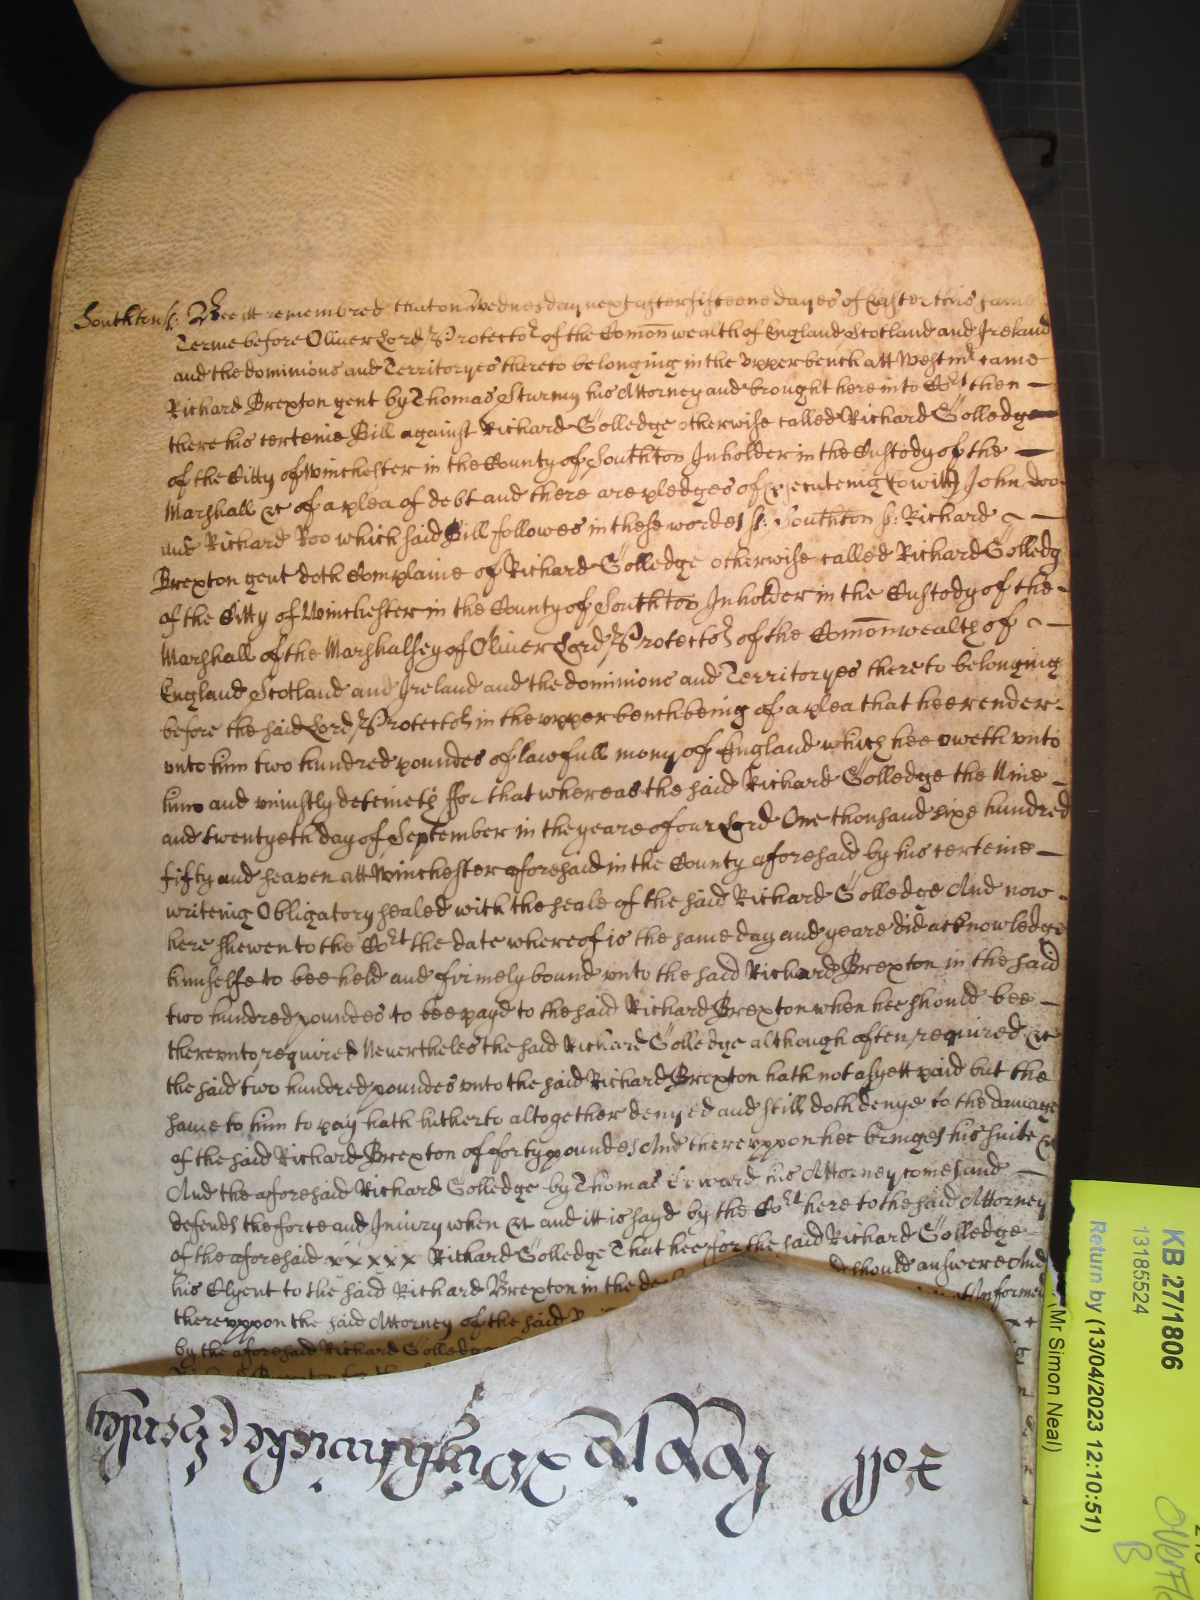 Southton ss: Bee itt remembred that on Wednesday next after fifteene dayes of Easter this same
Terme before Oliver Lord Protector of the Comonwealth of England Scotland and Ireland
and the dominions and Territoryes thereto belonging in the upper bench att Westmr came
Richard Brexton gent by Thomas Sturmy his Attorney and brought here into Cort then
there his certeine Bill against Richard Golledge otherwise called Richard Golledge
of the Citty of Winchester in the County of Southton Inholder in the Custody of the
Marshall &c of a plea of debt and there are pledges of prosecuteing (to witt) John Doo
and Richard Roo which said Bill followes in these words ss: Southton ss: Richard
Brexton gent doth Complaine of Richard Golledge otherwise called Richard Golledg
of the Citty of Winchester in the County of Southton Inholder in the Custody of the
Marshall of the Marshalsey of Oliver Lord Protector of the Comonwealth of
England Scotland and Ireland and the dominions and Territoryes there to belonging
before the said Lord Protector in the upper bench being of a plea that hee render
unto him two hundred poundes of lawfull mony of England which hee oweth unto
him and uniustly deteineth ffor that whereas the said Richard Golledge the Nine
and twentyeth day of September in the yeare of our Lord One thousand sixe hundred
fifty and seaven att Winchester aforesaid in the County aforesaid by his certeine
writeing Obligatory sealed with the seale of the said Richard Golledge And now
here shewen to the Cort the date whereof is the same day and yeare did acknowledge
himselfe to bee held and firmely bound unto the said Richard Brexton in the said
two hundred poundes to bee payd to the said Richard Brexton when hee should bee
thereunto required Nevertheles the said Richard Golledge although often required &c
the said two hundred poundes unto the said Richard Brexton hath not as yett paid but the
same to him to pay hath hitherto altogether denyed and still doth denye to the damage
of the said Richard Brexton of forty poundes And thereuppon hee bringes his suite &c
And the aforesaid Richard Golledge by Thomas his Attorney comes and
defends the force and Iniury when &c and itt is sayd by the Cort here to the said Attorney
of the aforesaid x x x x x Richard Golledge That hee for the said Richard Golledge
his Clyent to the said Richard Brexton in the should answere And
thereuppon the said Attorney of the said Informed
by the aforesaid Richard Golledge
KB 27/1806
13185524
Return by (13/04/2023 12:10:51)
(Mr Simon Neal)
B